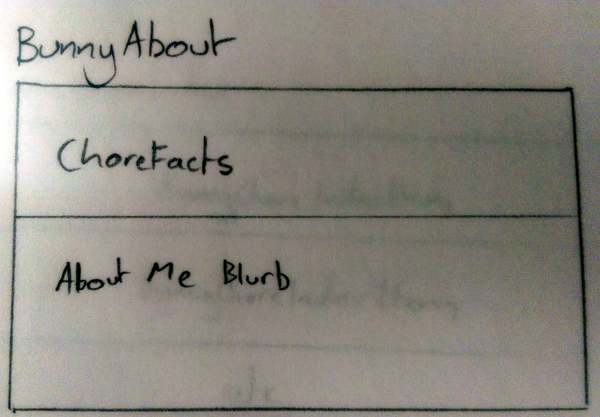 BunnyAbout
ChoreFacts
About Me Blurb